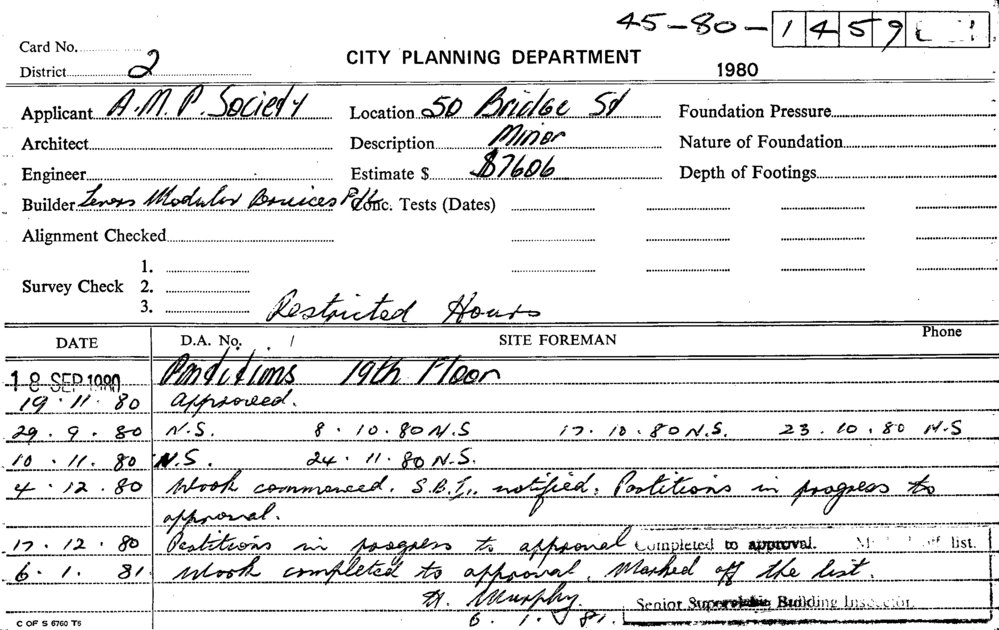 45-80-1459
Card No.
District 2
CITY PLANNING DEPARTMENT
1980
Applicant A.M.P. Society Location 50 Bridge St Foundation Pressure
Architect Description Minor Nature of Foundation
Engineer Estimate $ $7606 Depth of Footings
Builder Modular P/L Conc. Tests (Dates)
Alignment Checked
1.
Survey Check 2.
3.
Restricted Hours
DATE D.A. No. SITE FOREMAN Phone
18 SEP 1980 Partitions 19th Floor
19.11.80 Approved.
29.9.80 N.S. 8.10.80 N.S 17.10.80 N.S. 23.10.80 N.S
10.11.80 N.S. 24.11.80 N.S.
4.12.80 Work commenced. S.B.I. notified. Partitions in progress to
approval.
17.12.80 Partitions in progress to approval Completed to approval. off list.
6.1.81 Work completed to approval. Marked off the list.
H. Murphy. Senior Building Inspector.
6.1.81.
C OF S 6760 T6